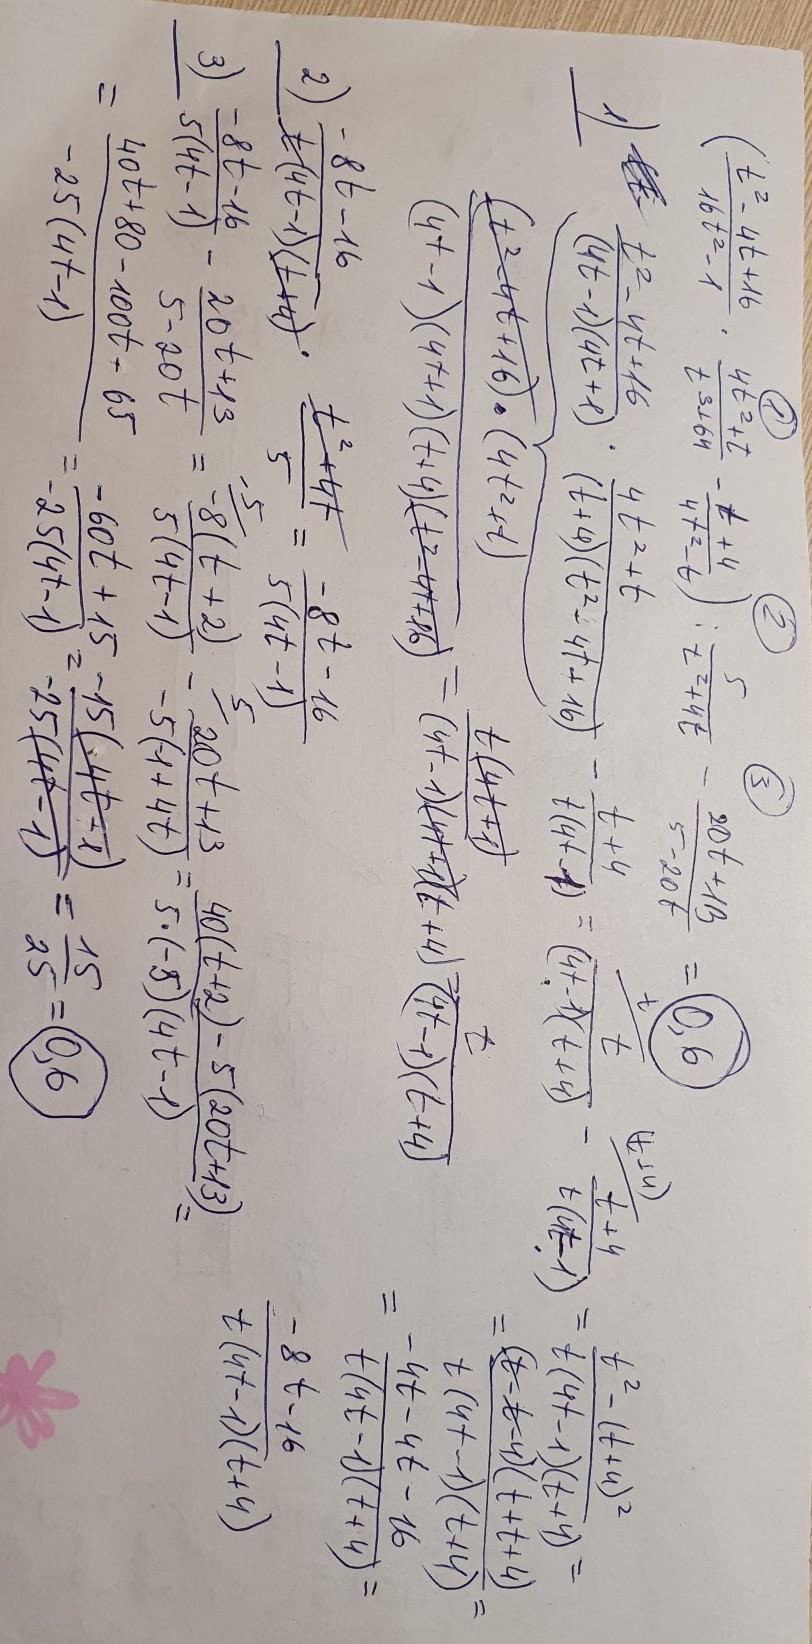 (t²-4t+16/16t²-1 · 4t²+t/t³+64 - t+4/4t²-t) : 5/t²+4t - 20t+13/5-20t = 0,6
① ② ③
1) t²-4t+16/(4t-1)(4t+1) · 4t²+t/(t+4)(t²-4t+16) - t+4/t(4t-1) = t/(4t-1)(t+4) - t+4/t(4t-1) = t²-(t+4)²/t(4t-1)(t+4) =
= (t-t-4)(t+t+4)/t(4t-1)(t+4) =
= -4t-4t-16/t(4t-1)(t+4) =
-8t-16/t(4t-1)(t+4)
(t²-4t+16)·(4t²+t)/(4t-1)(4t+1)(t+4)(t²-4t+16) = t(4t+1)/(4t-1)(4t+1)(t+4) = t/(4t-1)(t+4)
2) -8t-16/t(4t-1)(t+4) · t²+4t/5 = -8t-16/5(4t-1)
3) -8t-16/5(4t-1) - 20t+13/5-20t = -8(t+2)/5(4t-1) - 20t+13/-5(1+4t) = 40(t+2)-5(20t+13)/5·(-5)(4t-1) =
= 40t+80-100t+65/-25(4t-1) = -60t+15/-25(4t-1) = -15(4t-1)/-25(4t-1) = 15/25 = 0,6